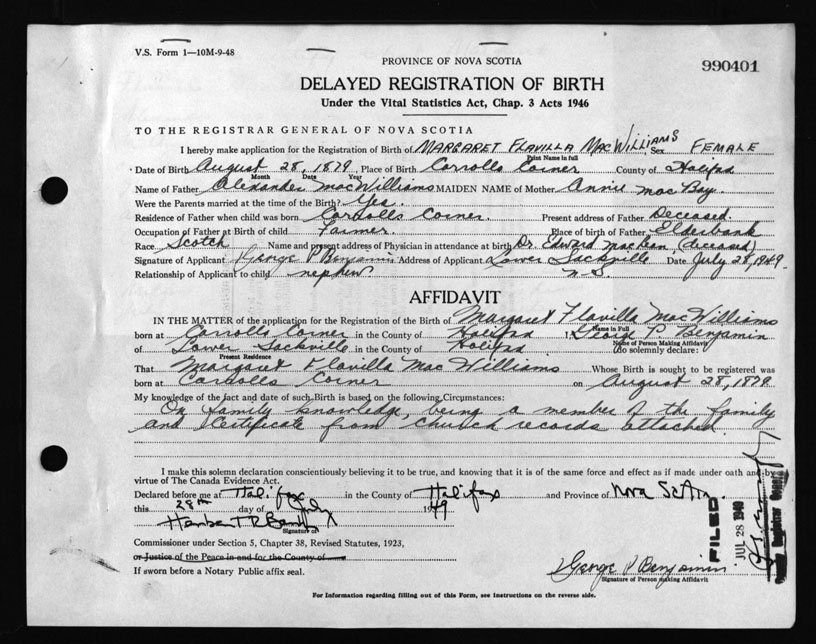 V.S. Form 1—10M-9-48
PROVINCE OF NOVA SCOTIA
990401
DELAYED REGISTRATION OF BIRTH
Under the Vital Statistics Act, Chap. 3 Acts 1946
TO THE REGISTRAR GENERAL OF NOVA SCOTIA
I hereby make application for the Registration of Birth of MARGARET FLAVILLA MACWILLIAMS Sex FEMALE
Print Name in full
Date of Birth August 28, 1879 Place of Birth Carrolls Corner County of Halifax
Month Date Year
Name of Father Alexander MacWilliams MAIDEN NAME of Mother Annie MacBay
Were the Parents married at the time of the Birth? Yes.
Residence of Father when child was born Carrolls Corner. Present address of Father Deceased.
Occupation of Father at Birth of child Farmer. Place of birth of Father Elderbank
Race Scotch Name and present address of Physician in attendance at birth Dr. Edward (deceased)
Signature of Applicant George P Benjamin Address of Applicant Lower Sackville Date July 28, 1949.
Relationship of Applicant to child nephew N.S.
AFFIDAVIT
IN THE MATTER of the application for the Registration of the Birth of Margaret Flavilla MacWilliams
Name in Full
born at Carrolls Corner in the County of Halifax I, George P. Benjamin
Name of Person Making Affidavit
of Lower Sackville in the County of Halifax do solemnly declare:
Present Residence
That Margaret Flavilla MacWilliams Whose Birth is sought to be registered was
born at Carrolls Corner on August 28, 1879.
My knowledge of the fact and date of such Birth is based on the following Circumstances:
On family knowledge, being a member of the family
and Certificate from church records attached.
I make this solemn declaration conscientiously believing it to be true, and knowing that it is of the same force and effect as if made under oath and by
virtue of The Canada Evidence Act.
Declared before me at Halifax in the County of Halifax and Province of Nova Scotia
this 28th day of July 1949
Signature of
Commissioner under Section 5, Chapter 38, Revised Statutes, 1923,
or Justice of the Peace in and for the County of
If sworn before a Notary Public affix seal.
George P Benjamin
Signature of Person making Affidavit
FILED
JUL 28 1949
For Information regarding filling out of this Form, see Instructions on the reverse side.